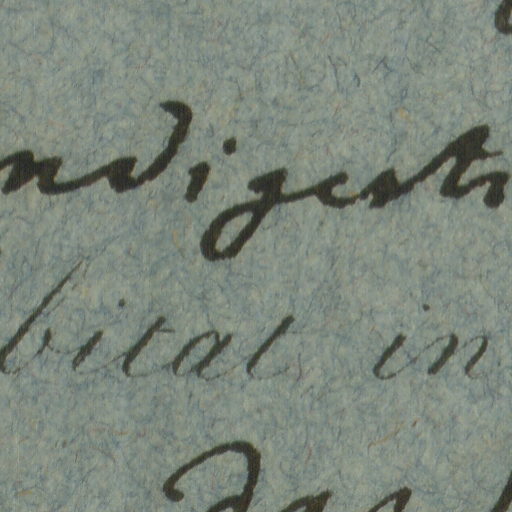 ndigestr
bitat in